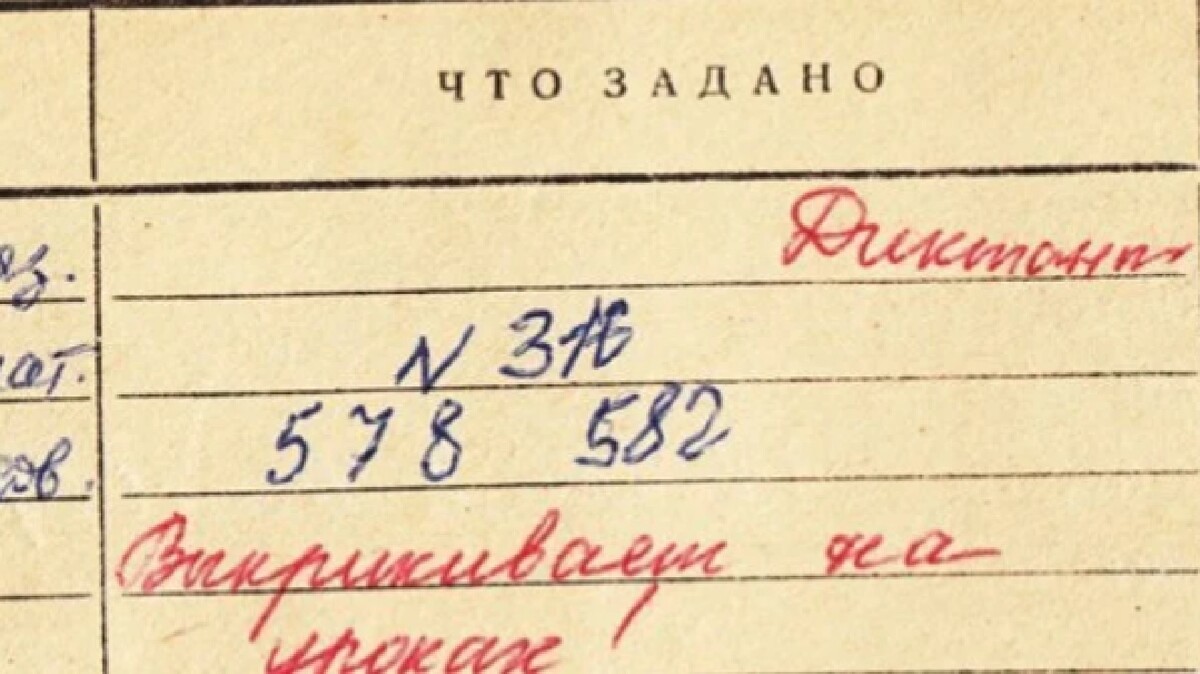 ЧТО ЗАДАНО
Диктант
N 316
578 582
Выкрикивает на
уроках!